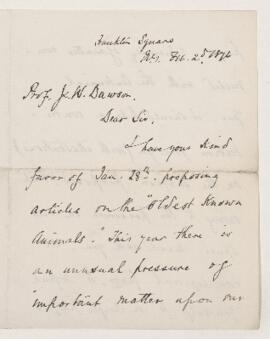 Franklin Square
N.Y. Feb. 2d 1874
Prof. J. W. Dawson.
Dear Sir.
I have your kind
favor of Jan. 28th. proposing
articles on the "Oldest Known
Animals." This year there is
an unusual pressure of
important matter upon our